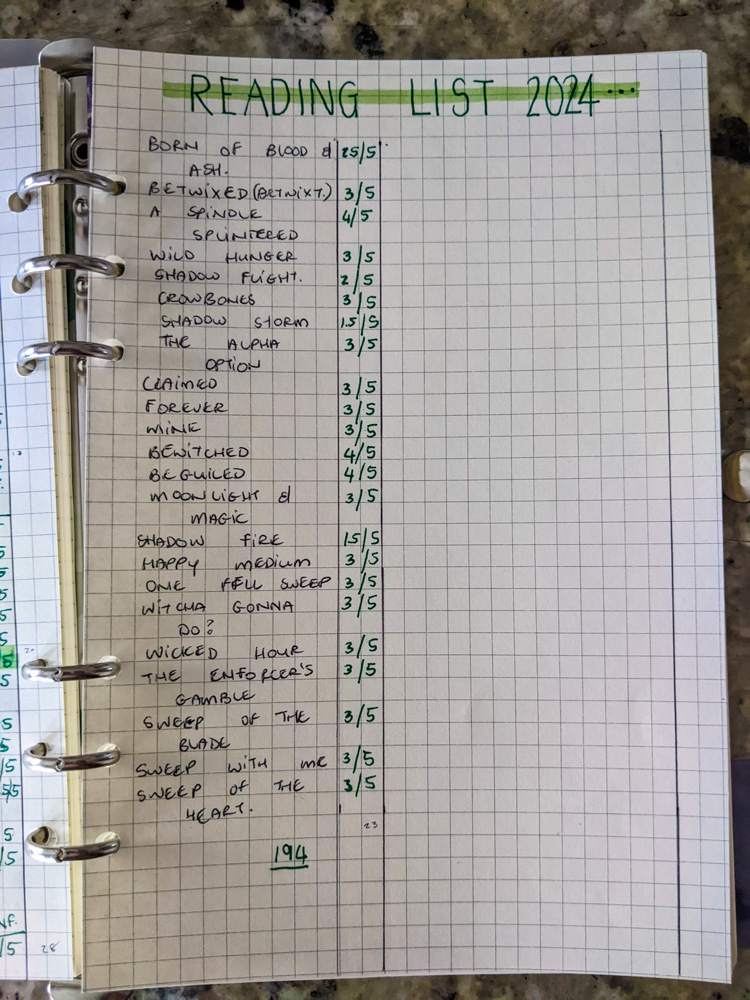 READING LIST 2024...
BORN OF BLOOD & 2.5/5
ASH.
BETWIXED (BETWIXT.) 3/5
A SPINDLE 4/5
SPLINTERED
WILD HUNGER 3/5
SHADOW FLIGHT. 2/5
CROWBONES 3/5
SHADOW STORM 1.5/5
THE ALPHA 3/5
OPTION
CLAIMED 3/5
FOREVER 3/5
MINE 3/5
BEWITCHED 4/5
BEGUILED 4/5
MOONLIGHT & 3/5
MAGIC
SHADOW FIRE 1.5/5
HAPPY MEDIUM 3/5
ONE FELL SWEEP 3/5
WITCHA GONNA 3/5
DO?
WICKED HOUR 3/5
THE ENFORCER'S 3/5
GAMBLE
SWEEP OF THE 3/5
BLADE
SWEEP WITH ME 3/5
SWEEP OF THE 3/5
HEART.
23
194
28